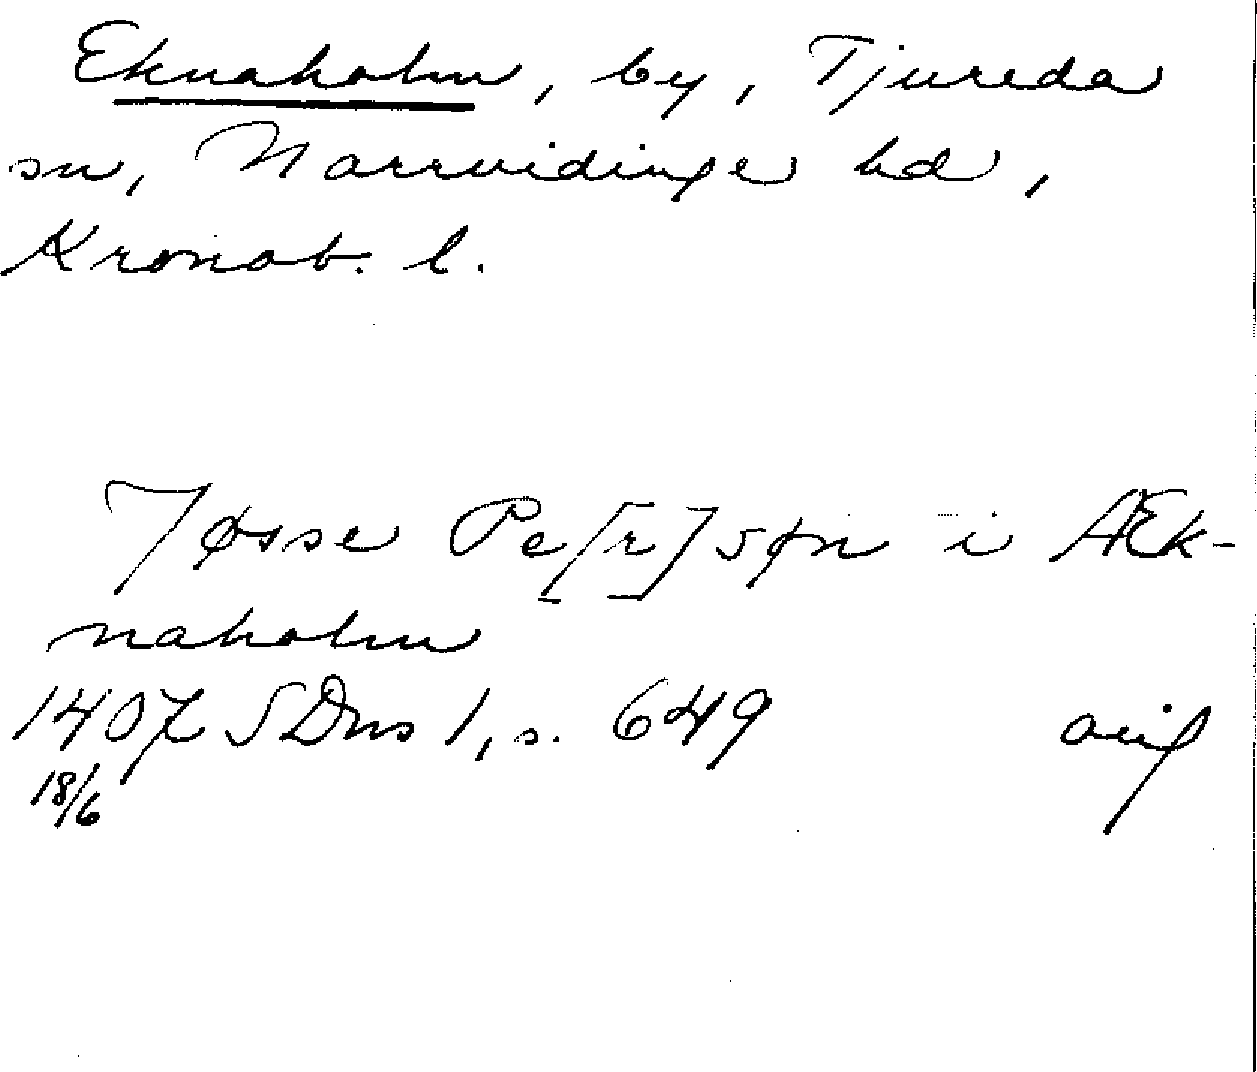 Eknaholm, by, Tjureda
sn, Norrvidinge hd,
Kronob. l.
Jøsse Pe[r]søn i Æk-
naholm
1407 SDns 1, s. 649 avif
18/6